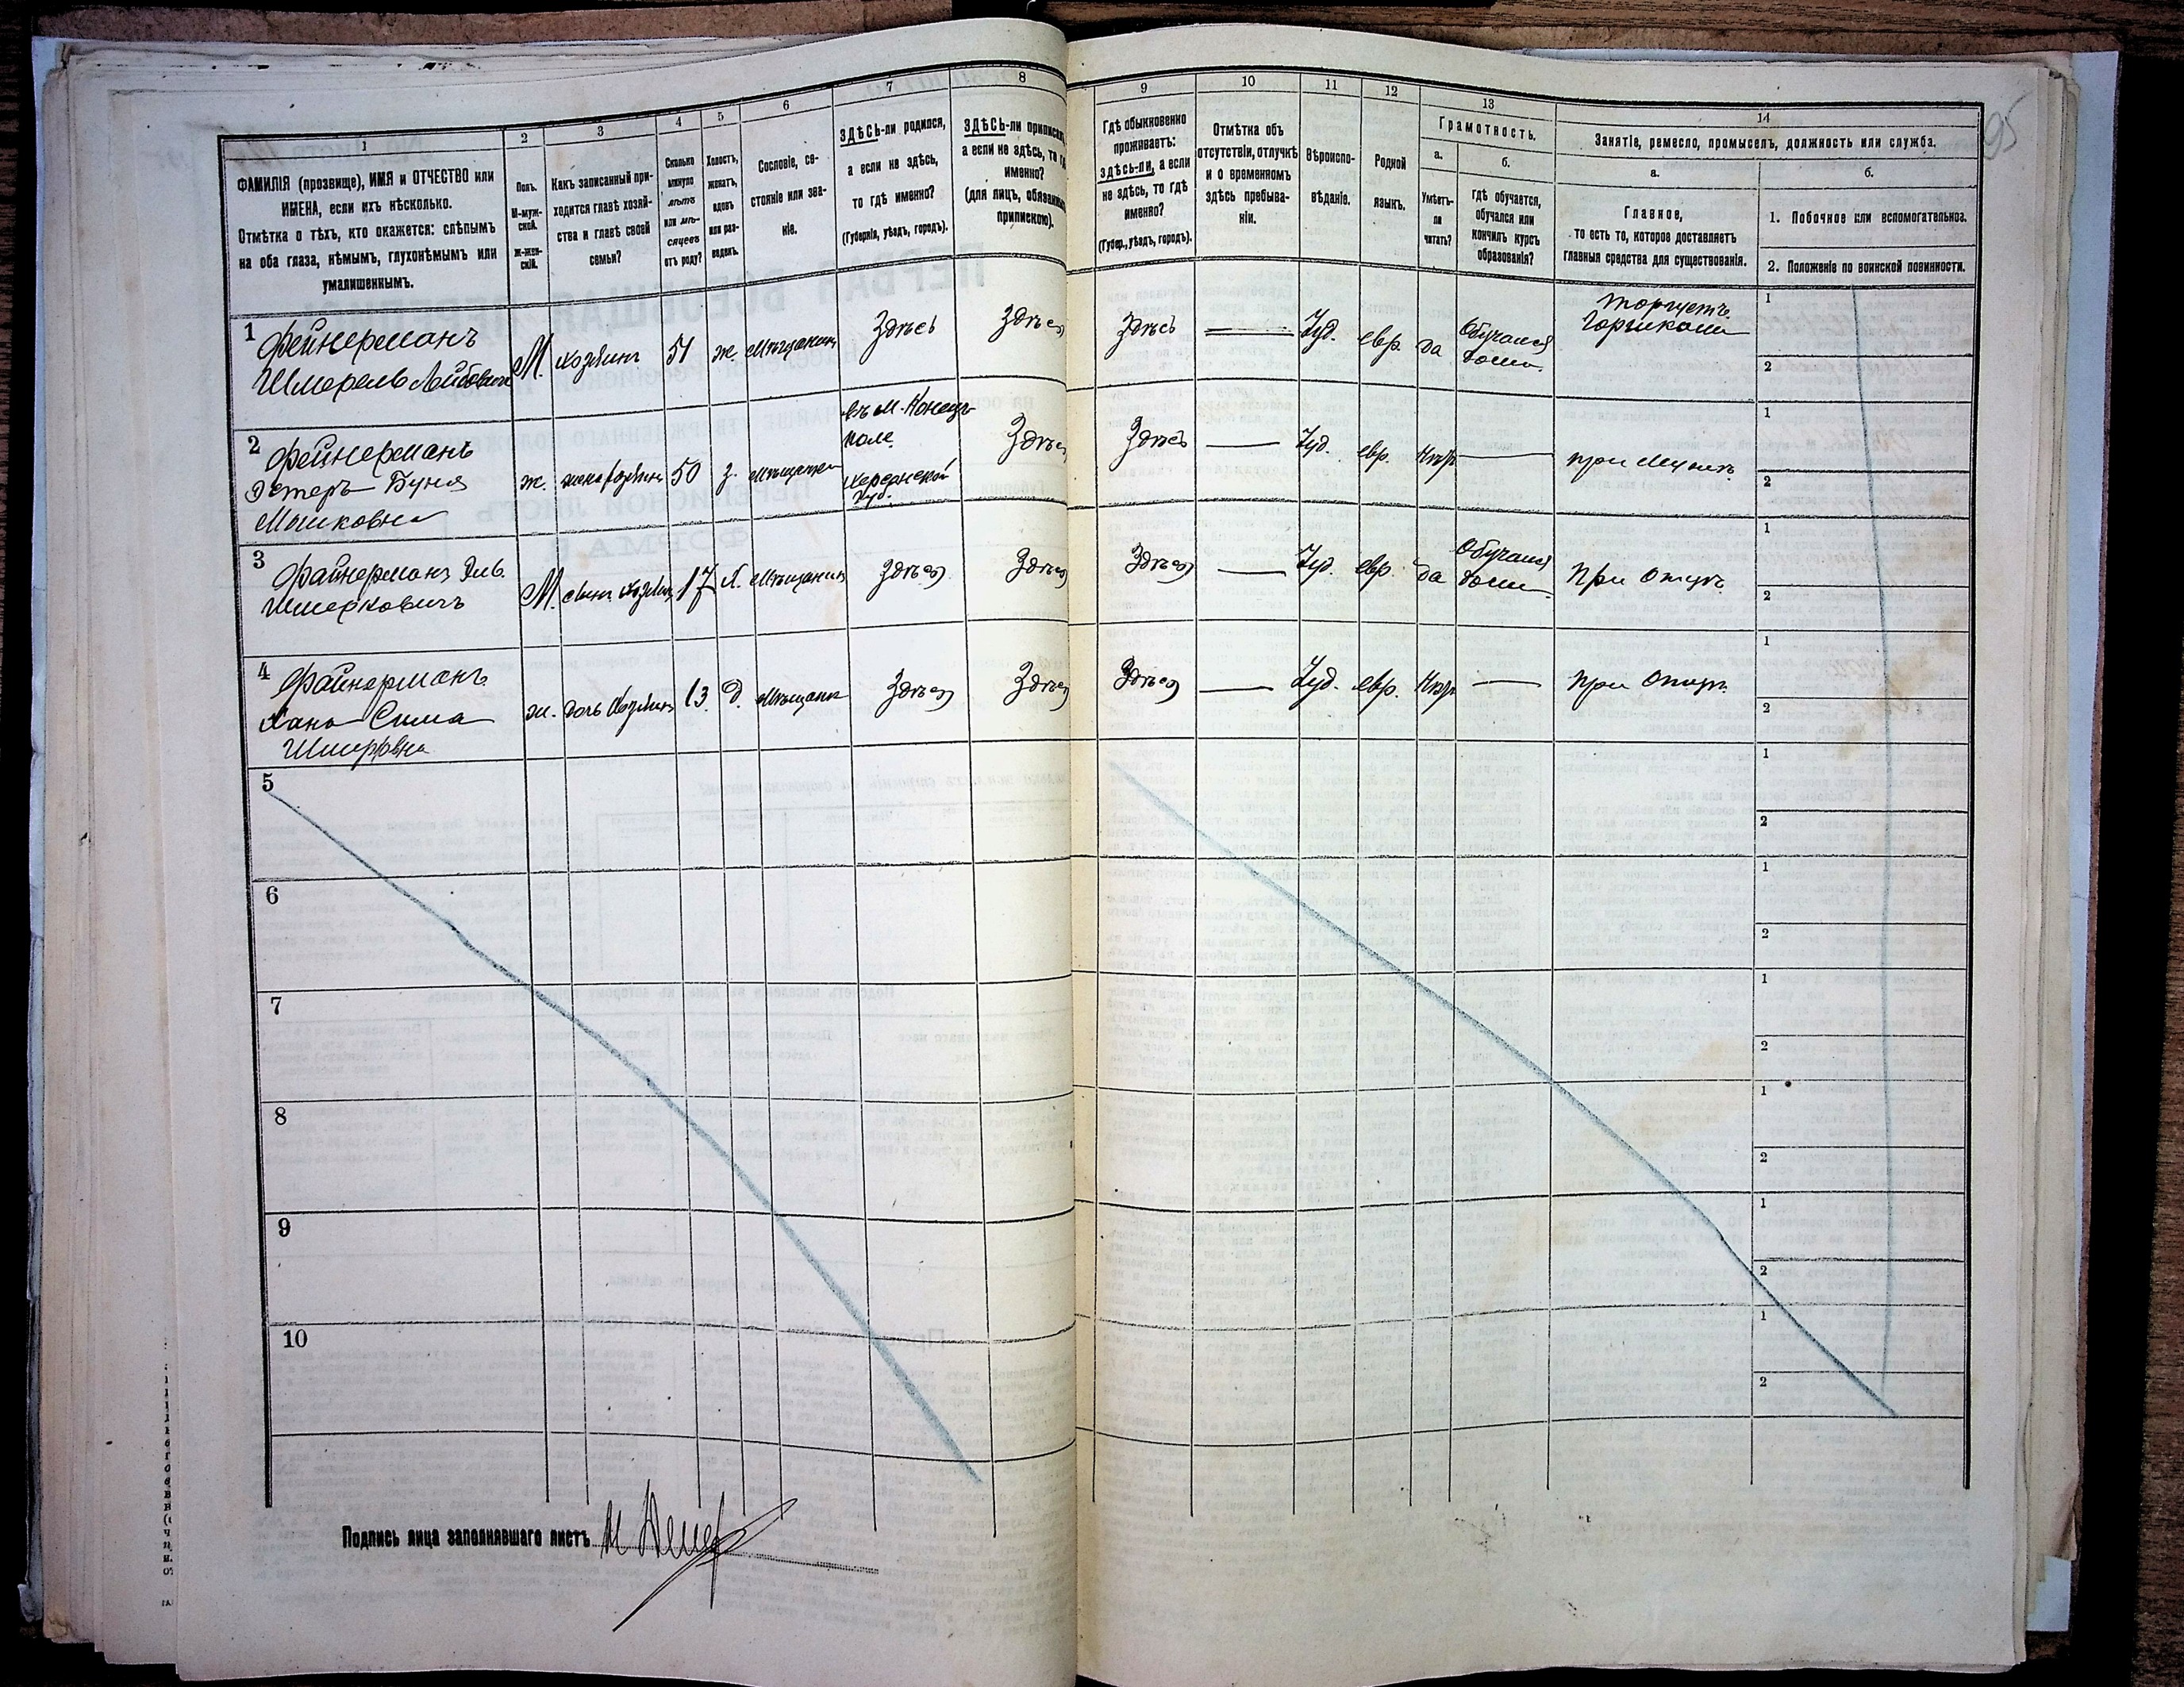 95
1
2
3
4
5
6
7
8
9
10
11
12
13
14
ФАМИЛІЯ (прозвище), ИМЯ и ОТЧЕСТВО или
ИМЕНА, если ихъ нѣсколько.
Отмѣтка о тѣхъ, кто окажется: слѣпымъ
на оба глаза, нѣмымъ, глухонѣмымъ или
умалишеннымъ.
Полъ.
М-муж-
ской.
Ж-жен-
скій.
Какъ записанный при-
ходится главѣ хозяй-
ства и главѣ своей
семьи?
Сколько
минуло
лѣтъ
или мѣ-
сяцевъ
отъ роду?
Холостъ,
женатъ,
вдовъ
или раз-
веденъ.
Сословіе, со-
стояніе или зва-
ніе.
ЗДѢСЬ-ли родился,
а если не здѣсь,
то гдѣ именно?
(Губернія, уѣздъ, городъ).
ЗДѢСЬ-ли приписанъ,
а если не здѣсь, то гдѣ
именно?
(для лицъ, обязанныхъ
припискою).
Гдѣ обыкновенно
проживаетъ:
здѣсь-ли, а если
не здѣсь, то гдѣ
именно?
(Губер., уѣздъ, городъ).
Отмѣтка объ
отсутствіи, отлучкѣ
и о временномъ
здѣсь пребыва-
ніи.
Вѣроиспо-
вѣданіе.
Родной
языкъ.
Грамотность.
а.
Умѣетъ-
ли
читать?
б.
Гдѣ обучается,
обучался или
кончилъ курсъ
образованія?
Занятіе, ремесло, промыселъ, должность или служба.
а.
Главное,
то есть то, которое доставляетъ
главныя средства для существованія.
б.
1. Побочное или вспомогательное.
2. Положеніе по воинской повинности.
1
Фейнерманъ
Шмерель Лейбовичъ
М.
хозяинъ
51
ж.
мѣщанинъ
Здѣсь
Здѣсь
Здѣсь
Іуд.
евр.
да
Обучался
дома.
Торгуетъ
горшками
1
2
2
Фейнерманъ
Эстеръ Буня
Мошковна
ж.
жена хозяина
50
з.
мѣщанка
въ м. Конец-
поле
Херсонской
губ.
Здѣсь
Здѣсь
Іуд.
евр.
Нѣтъ
при мужѣ
1
2
3
Файнерманъ
Шмерковичъ
М.
сынъ хозяина
17
х.
мѣщанинъ
Здѣсь
Здѣсь
Здѣсь
Іуд.
евр.
да
Обучался
дома.
При отцѣ
1
2
4
Файнерманъ
Хана Сима
ж.
дочь хозяина
13
д.
мѣщанка
Здѣсь
Здѣсь
Здѣсь
Іуд.
евр.
Нѣтъ
При отцѣ
1
2
5
1
2
6
1
2
7
1
2
8
1
2
9
1
2
10
1
2
Подпись лица заполнявшаго листъ